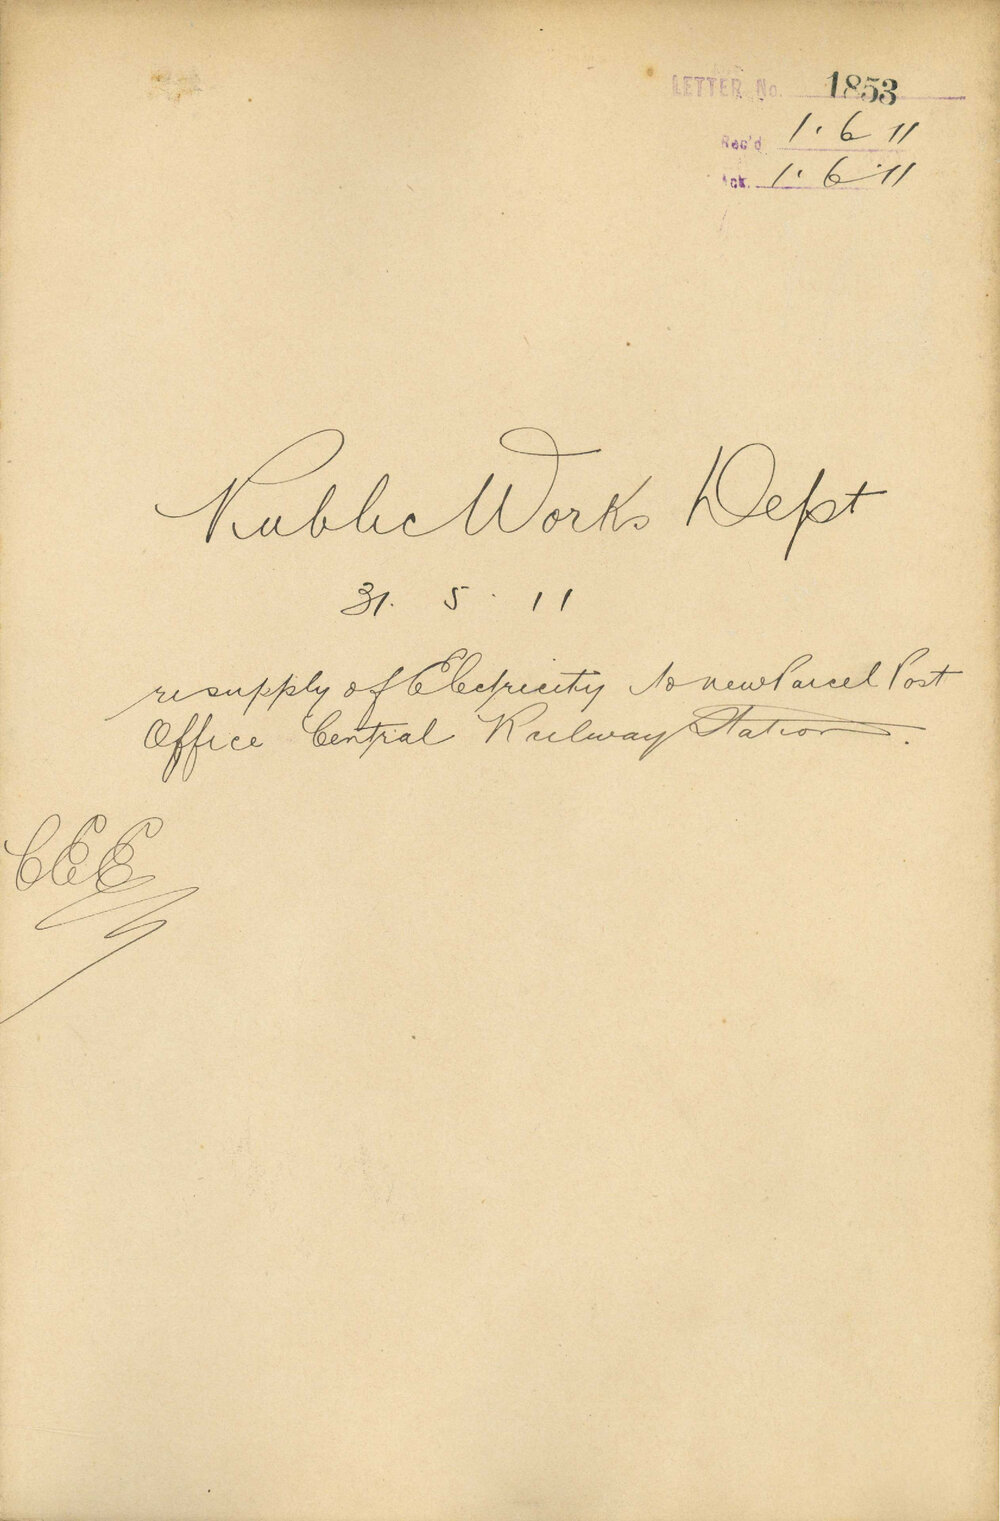 LETTER No. 1853
Rec'd 1.6.11
Ack. 1.6.11
Public Works Dept
31. 5. 11
re supply of Electricity to new Parcel Post
Office Central Railway Station.
CEE